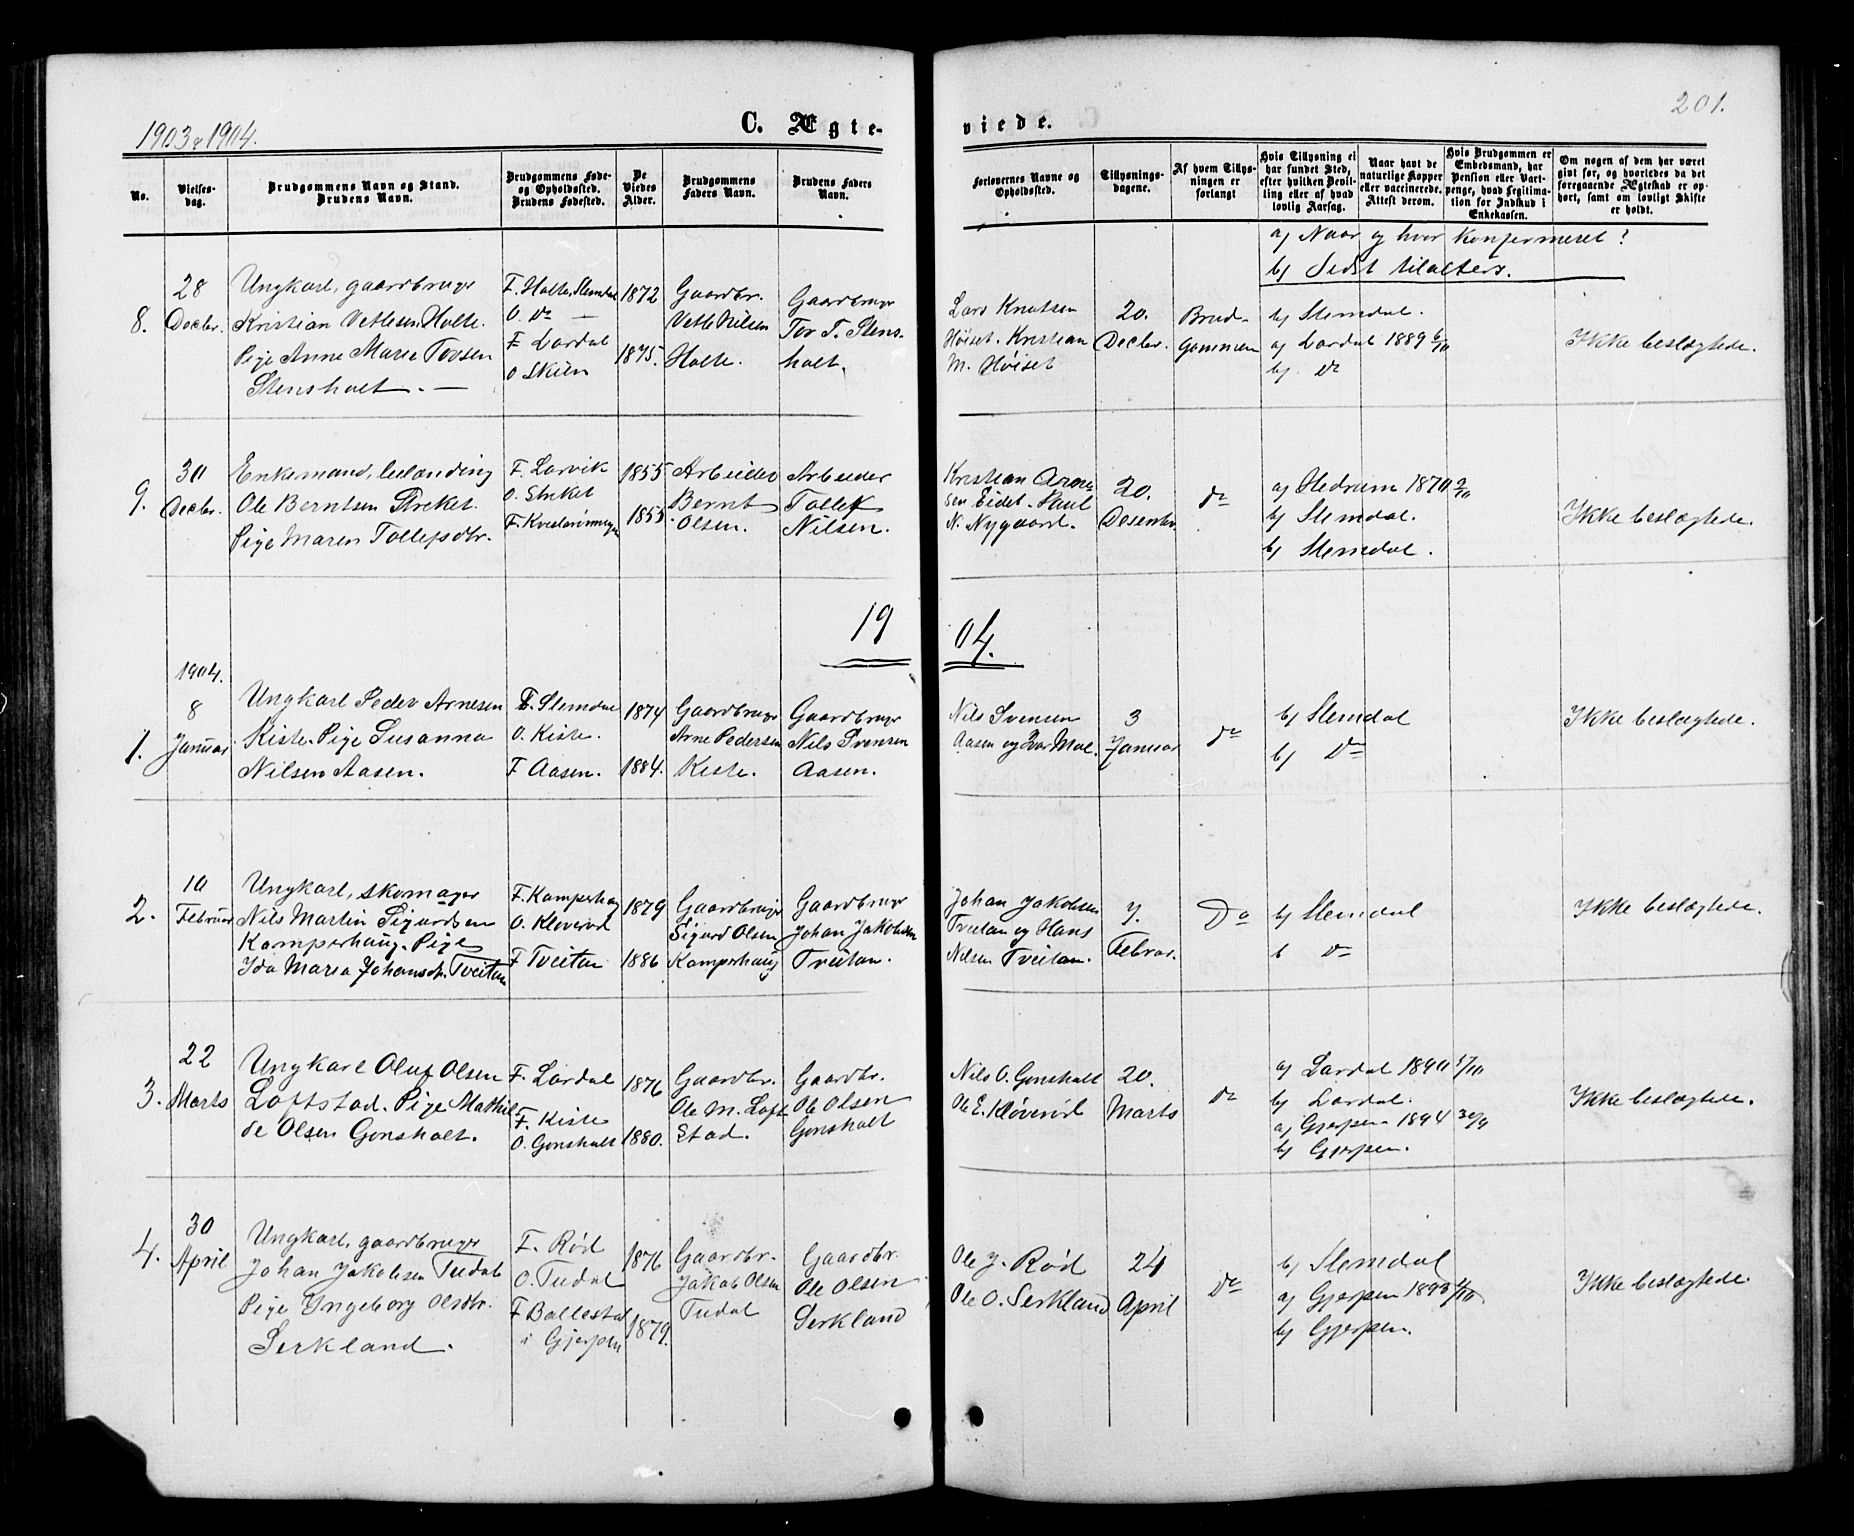 1903 & 1904.
C. Ægte-
viede.
201.
No.
Vielses-
dag.
Brudgommens Navn og Stand.
Brudens Navn.
Brudgommens Føde-
og Opholdssted.
Brudens Fødested.
De
Viedes
Alder.
Brudgommens
Faders Navn.
Brudens Faders
Navn.
Forlovernes Navne og
Opholdssted.
Tillysnings-
dagene.
Af hvem Tillys-
ningen er
forlangt
Hvis Tillysning ei
har fundet Sted,
efter hvilken Bevil-
ling eller af hvad
lovlig Aarsag.
Naar havt de
naturlige Kopper
eller vaccinerede.
Attest derom.
Hvis Brudgommen er
Embedsmand, har
Pension eller Vart-
penge, hvad Legitima-
tion for Indskud i
Enkekassen.
Om nogen af dem har været
givt før, og hvorledes da det
foregaaende Ægteskab er op-
hørt, samt om lovligt Skifte
er holdt.
a) Naar og hvor konfirmeret?
b) Sidst tilalters.
8.
28
Decbr.
Ungkarl, gaardbruger
Kristian Vetlesen Holte.
Pige Anne Maria Torsen
Stensholt. —
F. Holte, Slemdal
O. do —
F Lardal
O Skien
1872
1875.
Gaardbr.
Vetle Nilsen
Holte.
Gaardbruger
Tor T. Stens-
holt.
Lars Knutsen
Høiset. Kristian
M. Høiset
20.
Decbr.
Brud-
gommen
b) Slemdal.
a) Lardal 1889 6/10
b) do
Ikke beslægtede.
9.
30
Decbr.
Enkemand, leilænding
Ole Berntsen Streket.
Pige Maren Tollefsdtr.
F. Larvik
O. Streket
1855
1855
Arbeider
Bernt
Olsen.
Arbeider
Tollef
Nilsen.
Kristian Aron
sen Eidet. Paul
N. Nygaard.
20.
Desember
do
a) Hedrum 1870 2/10
b) Slemdal.
b) Slemdal.
Ikke beslægtede.
19
04.
1904.
1.
8
Januar
Ungkarl Peder Arnesen
Kiste. Pige Susanna
Nilsen Aasen.
F. Slemdal
O. Kiste.
F Aasen.
1874
1884.
Gaardbruger
Arne Pedersen
Kiste.
Gaardbruger
Nils Svensen
Aasen.
Nils Svensen
Aasen og Ivar Moe.
3
Januar
do
b) Slemdal
b) do
Ikke beslægtede.
2.
10
Februar
Ungkarl, skomager
Nils Martin Sigurdsen
Kamperhaug. Pige
Ida Maria Johansdt. Tveitan
F. Kamperhaug
O. Kleverød
F Tveitan
1879
1886
Gaardbruger
Sigurd Olsen
Kamperhaug
Gaardbruger
Johan Jakobsen
Tveitan.
Johan Jakobsen
Tveitan og Hans
Nilsen Tveitan.
7.
Februar.
Do
b) Slemdal
b do
Ikke beslægtede.
3.
22
Marts
Ungkarl Oluf Olsen
Loftstad. Pige Mathil
de Olsen Gonsholt.
F. Lardal
F. Kiste
O. Gonsholt
1876
1880.
Gaardbr.
Ole M. Loft
stad.
Gaardbr.
Ole Olsen
Gonsholt
Nils O. Gonsholt
Ole E. Kløverød
20.
Marts
do
a) Lardal 1890 5/10
b) Lardal.
a) Gjerpen 1894 30/9
b) Gjerpen.
Ikke beslægtede.
4.
30
April
Ungkarl, gaardbruger
Johan Jakobsen Tudal
Pige Ingeborg Olsdtr.
Serkland.
F. Rød
O. Tudal
F Ballestad
i Gjerpen
1876
1879.
Gaardbr.
Jakob Olsen
Tudal
Gaardbr.
Ole Olsen
Serkland
Ole J. Rød
Ole O. Serkland
24
April
Do
b) Slemdal
a) Gjerpen 1893
b) Gjerpen.
Ikke beslægtede.